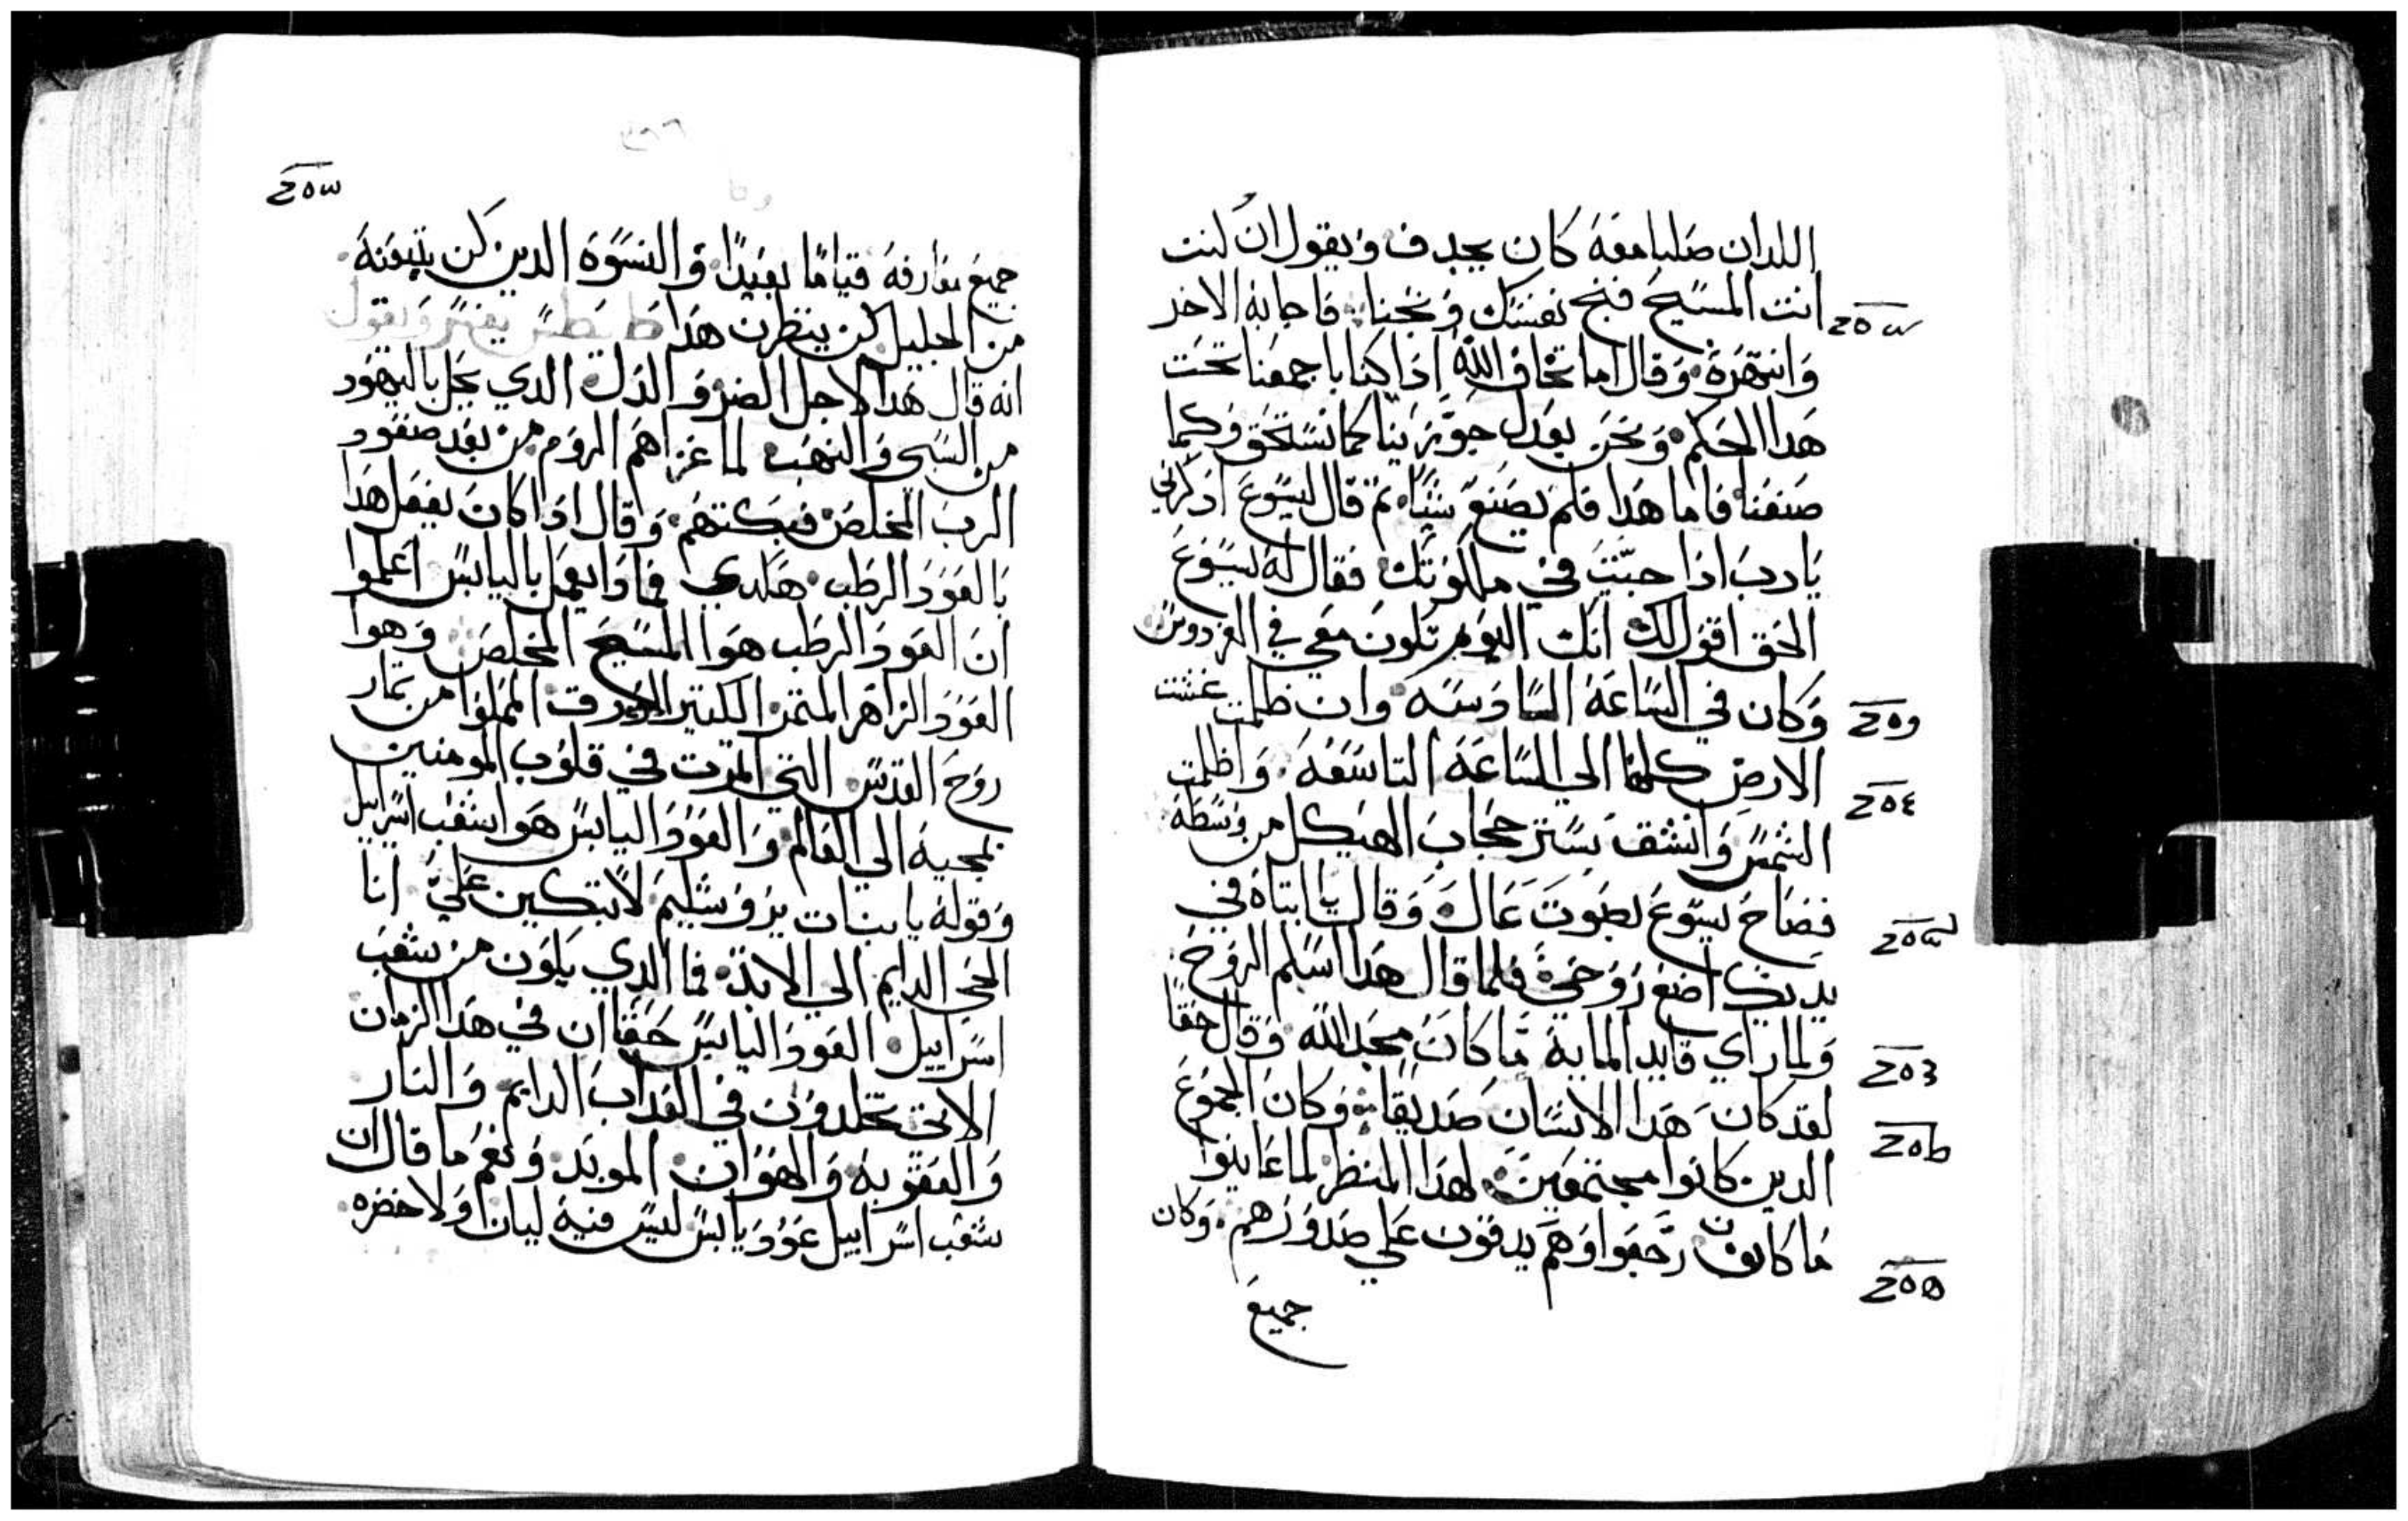 اللدان صلبا معه كان يجدف ويقول ان كنت
انت المسيح فنج نفسك ونجنا. فاجابه الاخر
وانتهره. وقال اما تخاف الله اذا كنا باجمعنا تحت
هدا الحكم. ونحن بعدل جوزينا كما نستحق وكما
صنعنا فاما هدا فلم يصنع شيا. تم قال ليسوع ادكرني
يا رب ادا جيت في ملكوتك. فقال له يسوع
الحق اقول لك انك اليوم تكون معي في الفردوس
وكان في الساعة السادسه وان ظلمت غشت
الارض كلها الي الساعة التاسعه. واظلمت
الشمس وانشق ستر حجاب الهيكل من وسطه.
فصاح يسوع بصوت عال وقال يا ابتاه في
يديك اضع روحي فلما قال هدا اسلم الروح.
ولما راي قايد المايه ما كان مجد الله وقال حقا
لقد كان هدا الانسان صديقا. وكان الجموع
الدين كانوا مجتمعين لهدا المنظر لما عاينوا
ما كان رجعوا وهم يدقون علي صدورهم. وكان
جميع
جميع معارفه قياما بعيدا. والنسوة الدين كن يتبعنه.
من الجليل كن ينظرن هدا طيطس يفسر ويقول
انه قال هدا لاجل الضر والدل الدي يحل باليهود
من السبي والنهب لما غزاهم الروم من بعد صعود
الرب المخلص فبكتهم. وقال ادا كان يفعل هدا
بالعود الرطب هكدي فمادا يعمل باليابس اعلموا
ان العود الرطب هوا المسيح المخلص وهوا
العود الزاهر المتمر الكتير الورق المملوا من تمار
روح القدس التي اتمرت في قلوب المومنين
بمجيه الي العالم والعود اليابس هوا شعب اسراييل
وقوله يا بنات يروشليم لا تبكين علي. انا
الحي الدايم الي الابد. فما الدي يكون من شعب
اسراييل العود اليابس حقا ان في هدا الزمان
الاتي تخلدون في العداب الدايم والنار
والعقوبه والهوان الموبد ونعم ما قال ان
شعب اسراييل عود يابس ليس فيه ليان ولا خضره.